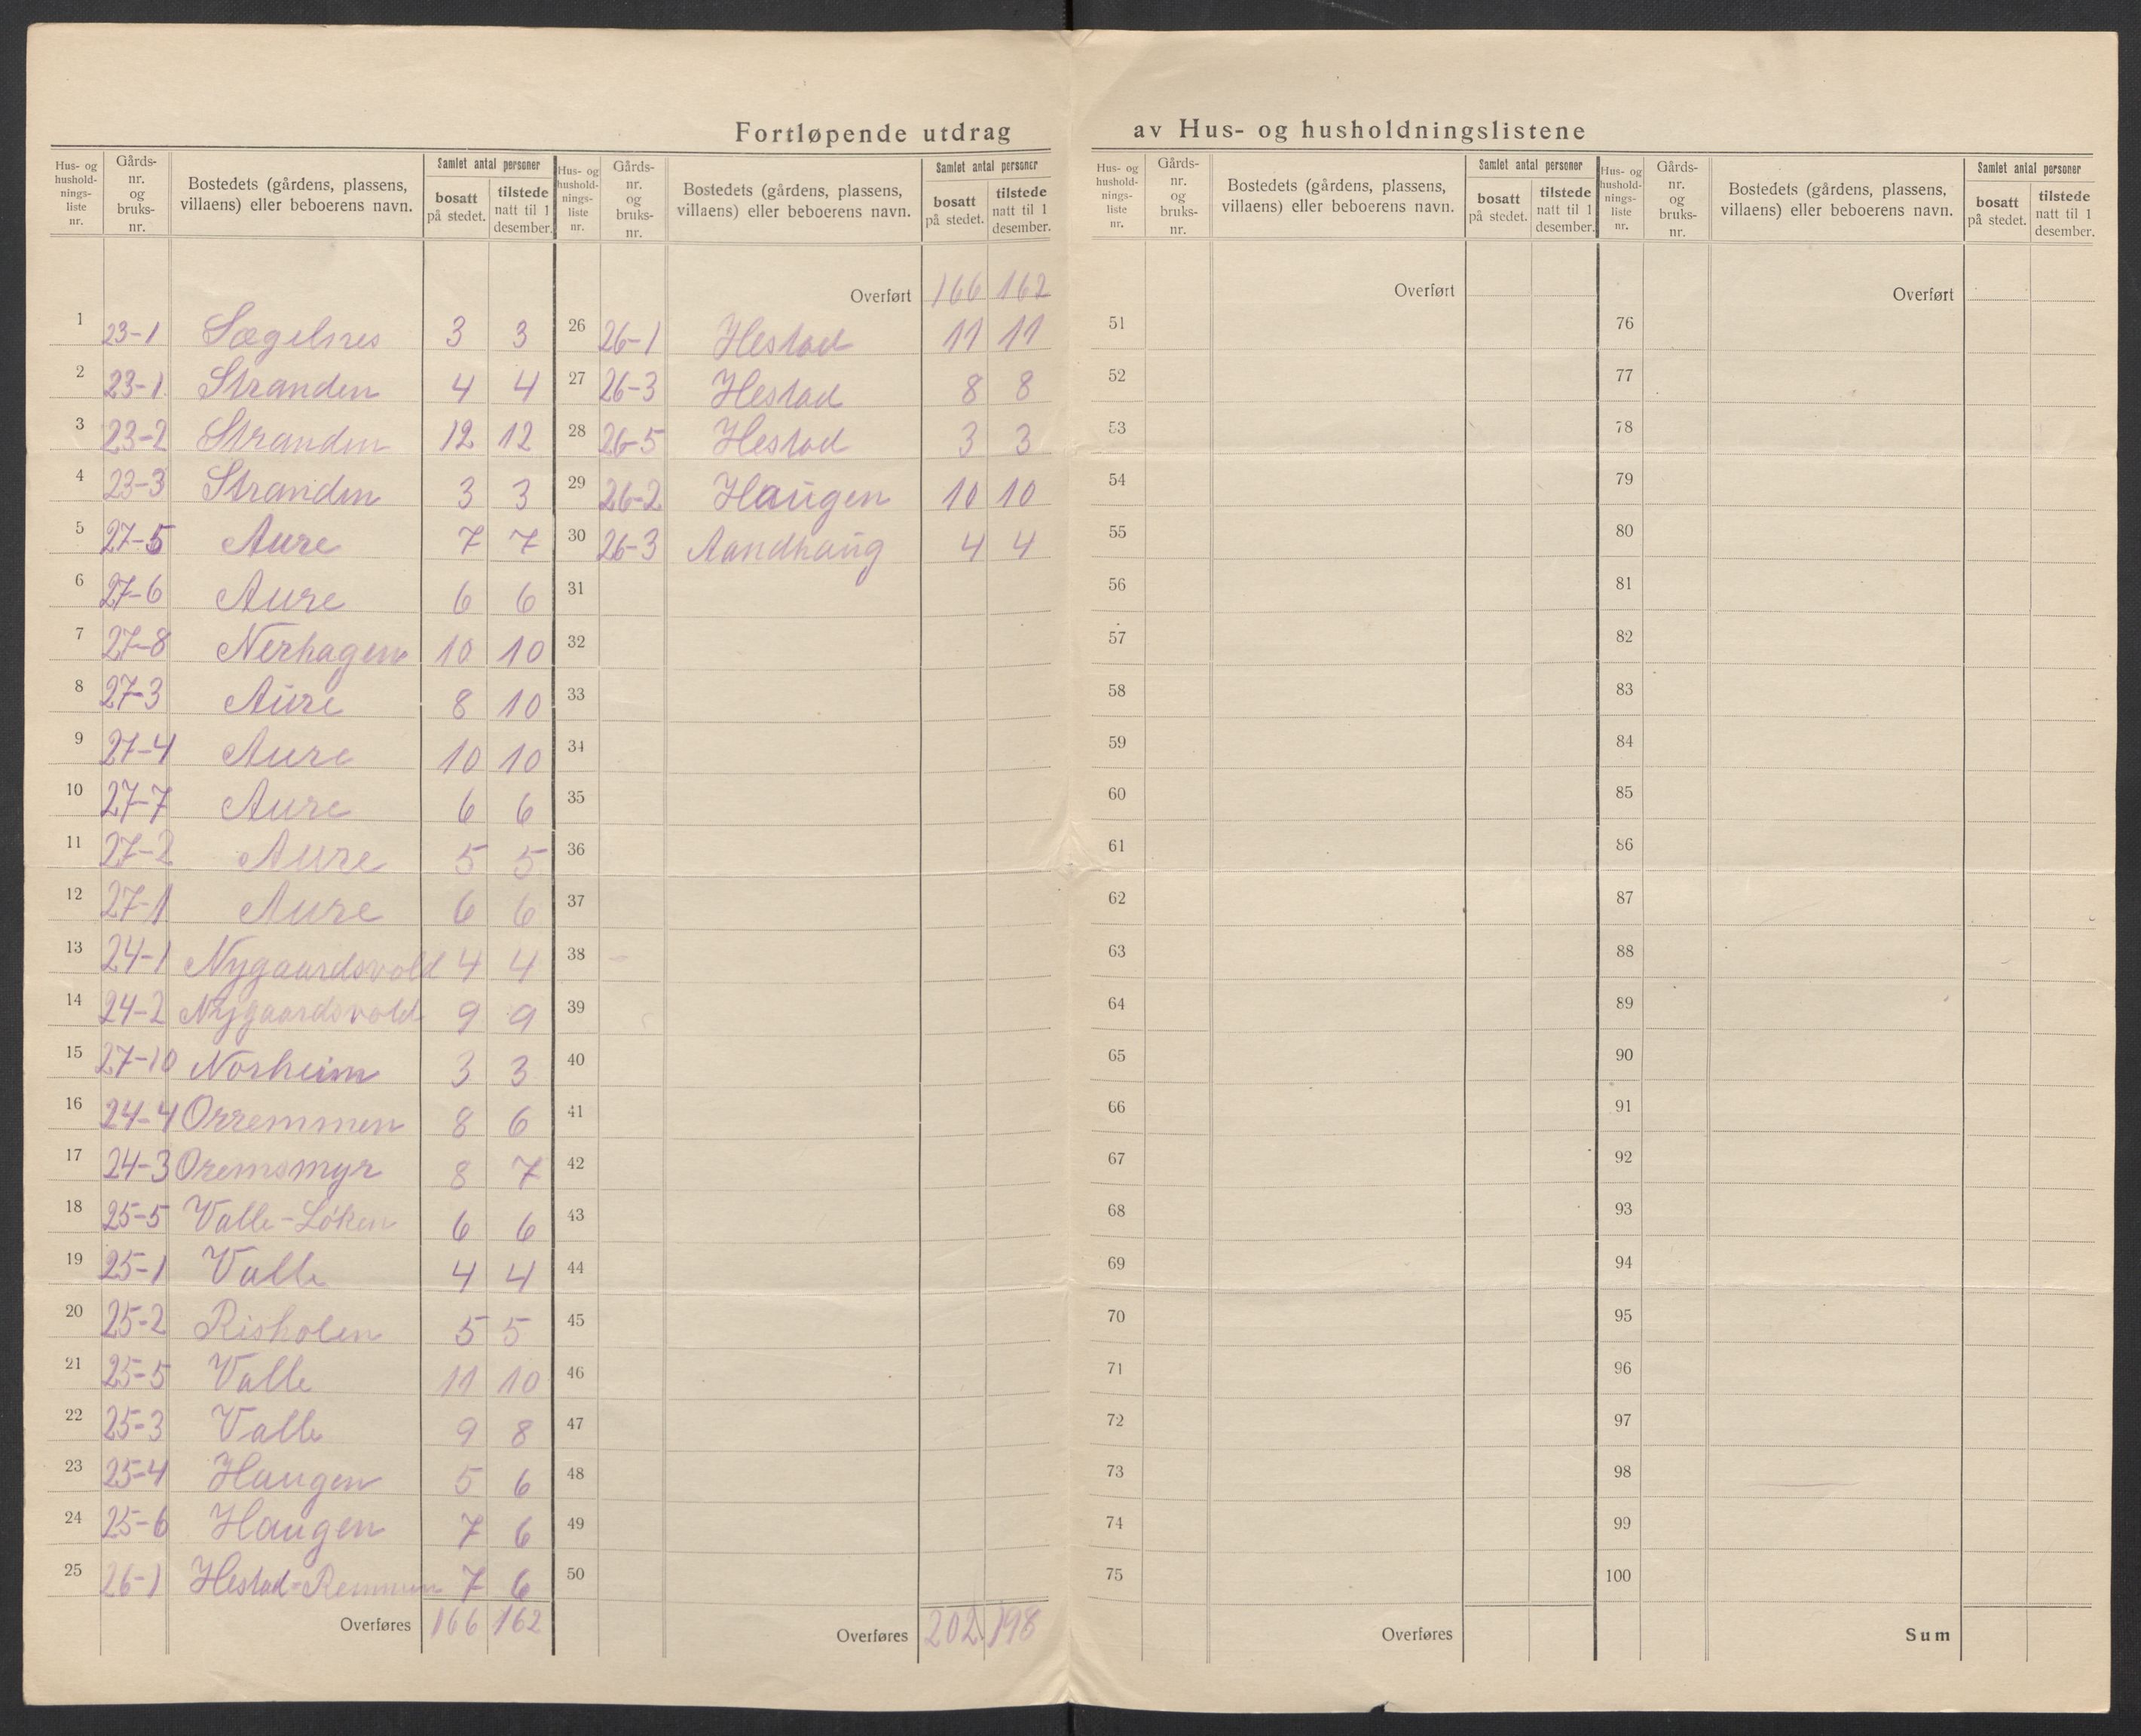 Fortløpende utdrag av Hus- og husholdningslistene
Hus- og hushold- nings- liste nr.
Gårds- nr. og bruks- nr.
Bostedets (gårdens, plassens, villaens) eller beboerens navn.
Samlet antal personer
bosatt på stedet.
tilstede natt til 1 desember.
1 23-1 Sægelnes 3 3
2 23-1 Stranden 4 4
3 23-2 Stranden 12 12
4 23-3 Stranden 3 3
5 27-5 Aure 7 7
6 27-6 Aure 6 6
7 27-8 Nerhagen 10 10
8 27-3 Aure 8 10
9 27-4 Aure 10 10
10 27-7 Aure 6 6
11 27-2 Aure 5 5
12 27-1 Aure 6 6
13 24-1 Nygaardsvold 4 4
14 24-2 Nygaardsvold 9 9
15 27-10 Norheim 3 3
16 24-4 Orremmen 8 6
17 24-3 Oremsmyr 8 7
18 25-5 Valle-Løken 6 6
19 25-1 Valle 4 4
20 25-2 Risholen 5 5
21 25-5 Valle 11 10
22 25-3 Valle 9 8
23 25-4 Haugen 5 6
24 25-6 Haugen 7 6
25 26-1 Hestad-Remmen 7 6
Overføres 166 162
Hus- og hushold- nings- liste nr.
Gårds- nr. og bruks- nr.
Bostedets (gårdens, plassens, villaens) eller beboerens navn.
Samlet antal personer
bosatt på stedet.
tilstede natt til 1 desember.
Overført 166 162
26 26-1 Hestad 11 11
27 26-3 Hestad 8 8
28 26-5 Hestad 3 3
29 26-2 Haugen 10 10
30 26-3 Aandhaug 4 4
31
32
33
34
35
36
37
38
39
40
41
42
43
44
45
46
47
48
49
50
Overføres 202 198
Hus- og hushold- nings- liste nr.
Gårds- nr. og bruks- nr.
Bostedets (gårdens, plassens, villaens) eller beboerens navn.
Samlet antal personer
bosatt på stedet.
tilstede natt til 1 desember.
Overført
51
52
53
54
55
56
57
58
59
60
61
62
63
64
65
66
67
68
69
70
71
72
73
74
75
Overføres
Hus- og hushold- nings- liste nr.
Gårds- nr. og bruks- nr.
Bostedets (gårdens, plassens, villaens) eller beboerens navn.
Samlet antal personer
bosatt på stedet.
tilstede natt til 1 desember.
Overført
76
77
78
79
80
81
82
83
84
85
86
87
88
89
90
91
92
93
94
95
96
97
98
99
100
Sum